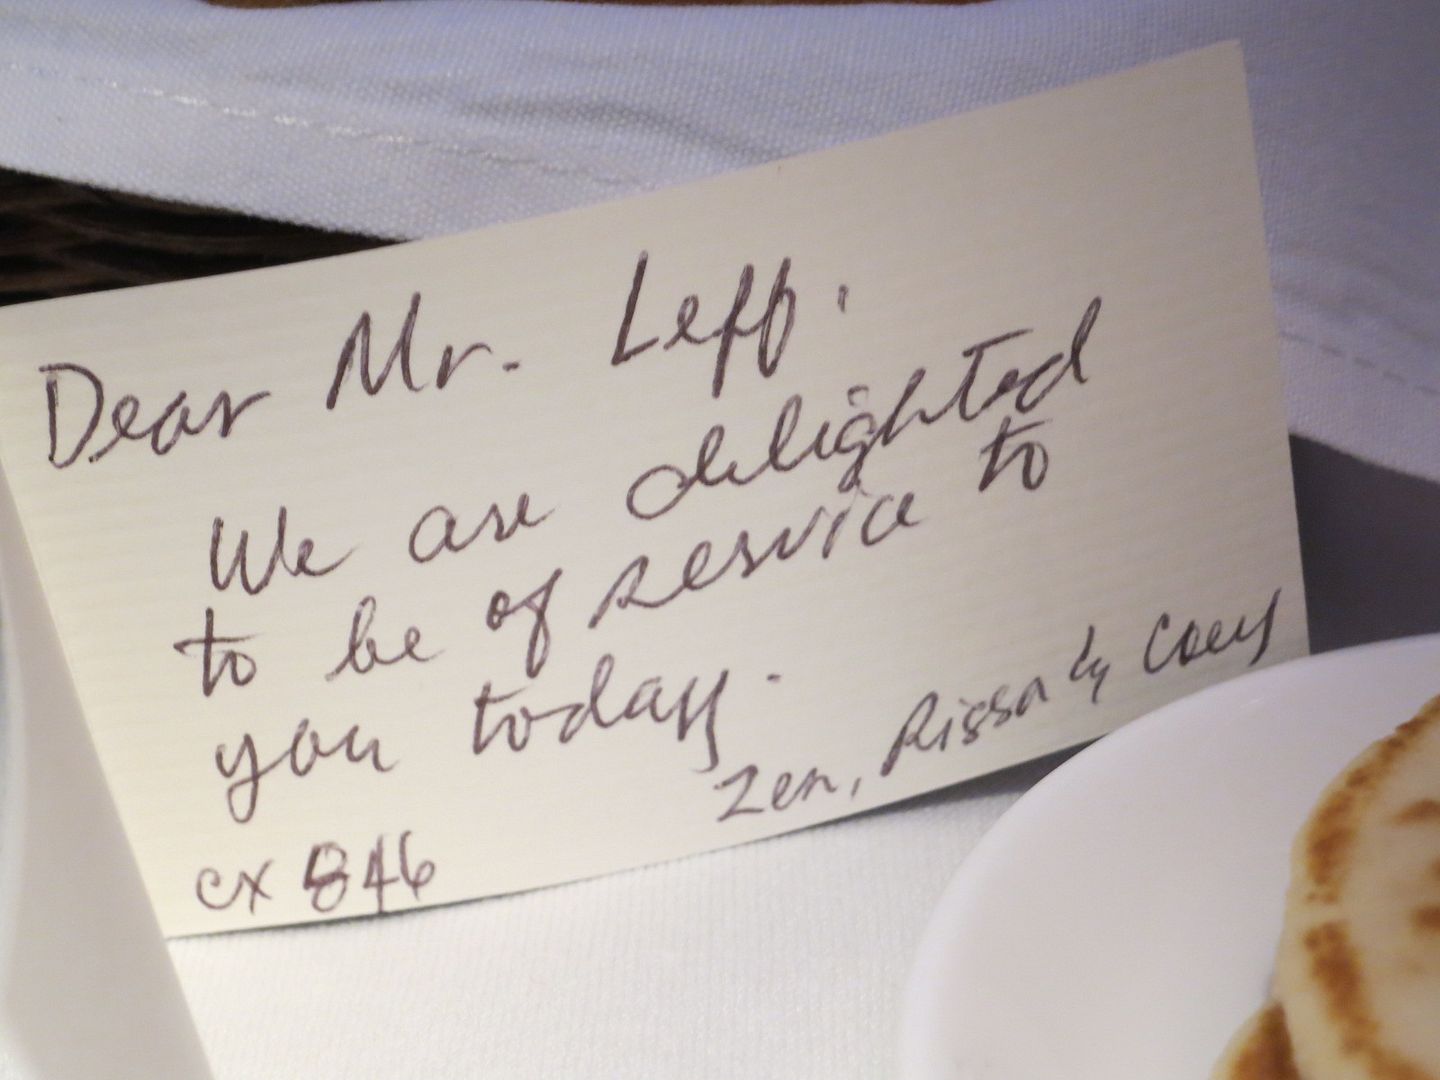 Dear Mr. Leff,
We are delighted
to be of service to
you today.
Zen, Rissa & Coey
CX 846